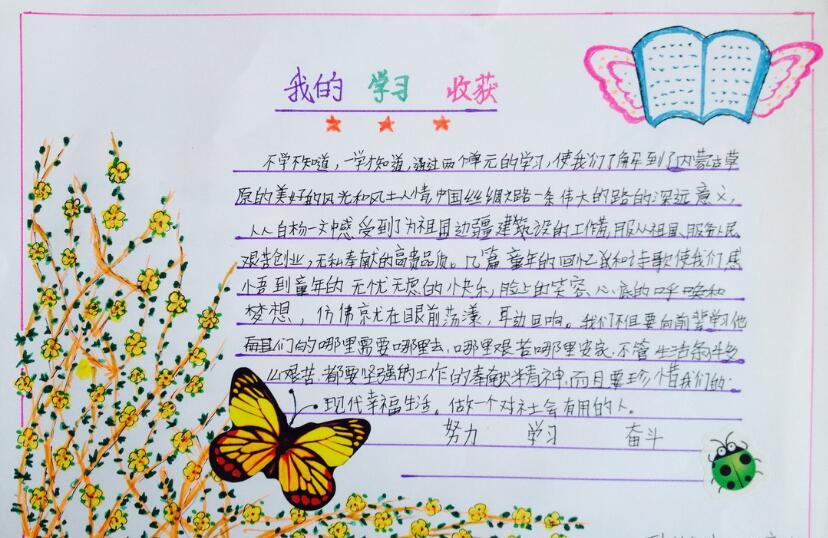 我的 学习 收获
不学不知道，一学才知道，通过两个单元的学习，使我们了解到了内蒙古草
原的美好的风光和风土人情，中国丝绸之路一条伟大的路的深远意义，
从白杨一文中感受到了为祖国边疆建设的工作者，服从祖国、服务人民
艰苦创业，无私奉献的高贵品质。几篇童年的回忆和诗歌使我们感
悟到童年的无忧无虑的快乐，脸上的笑容、心底的呼唤和
梦想，仿佛就在眼前荡漾，耳边回响。我们不但要向前辈学习他
们的哪里需要哪里去，哪里艰苦哪里安家，不管生活条件多
么艰苦都要坚强的工作的奉献精神，而且要珍惜我们的
现代幸福生活。做一个对社会有用的人。
努力 学习 奋斗